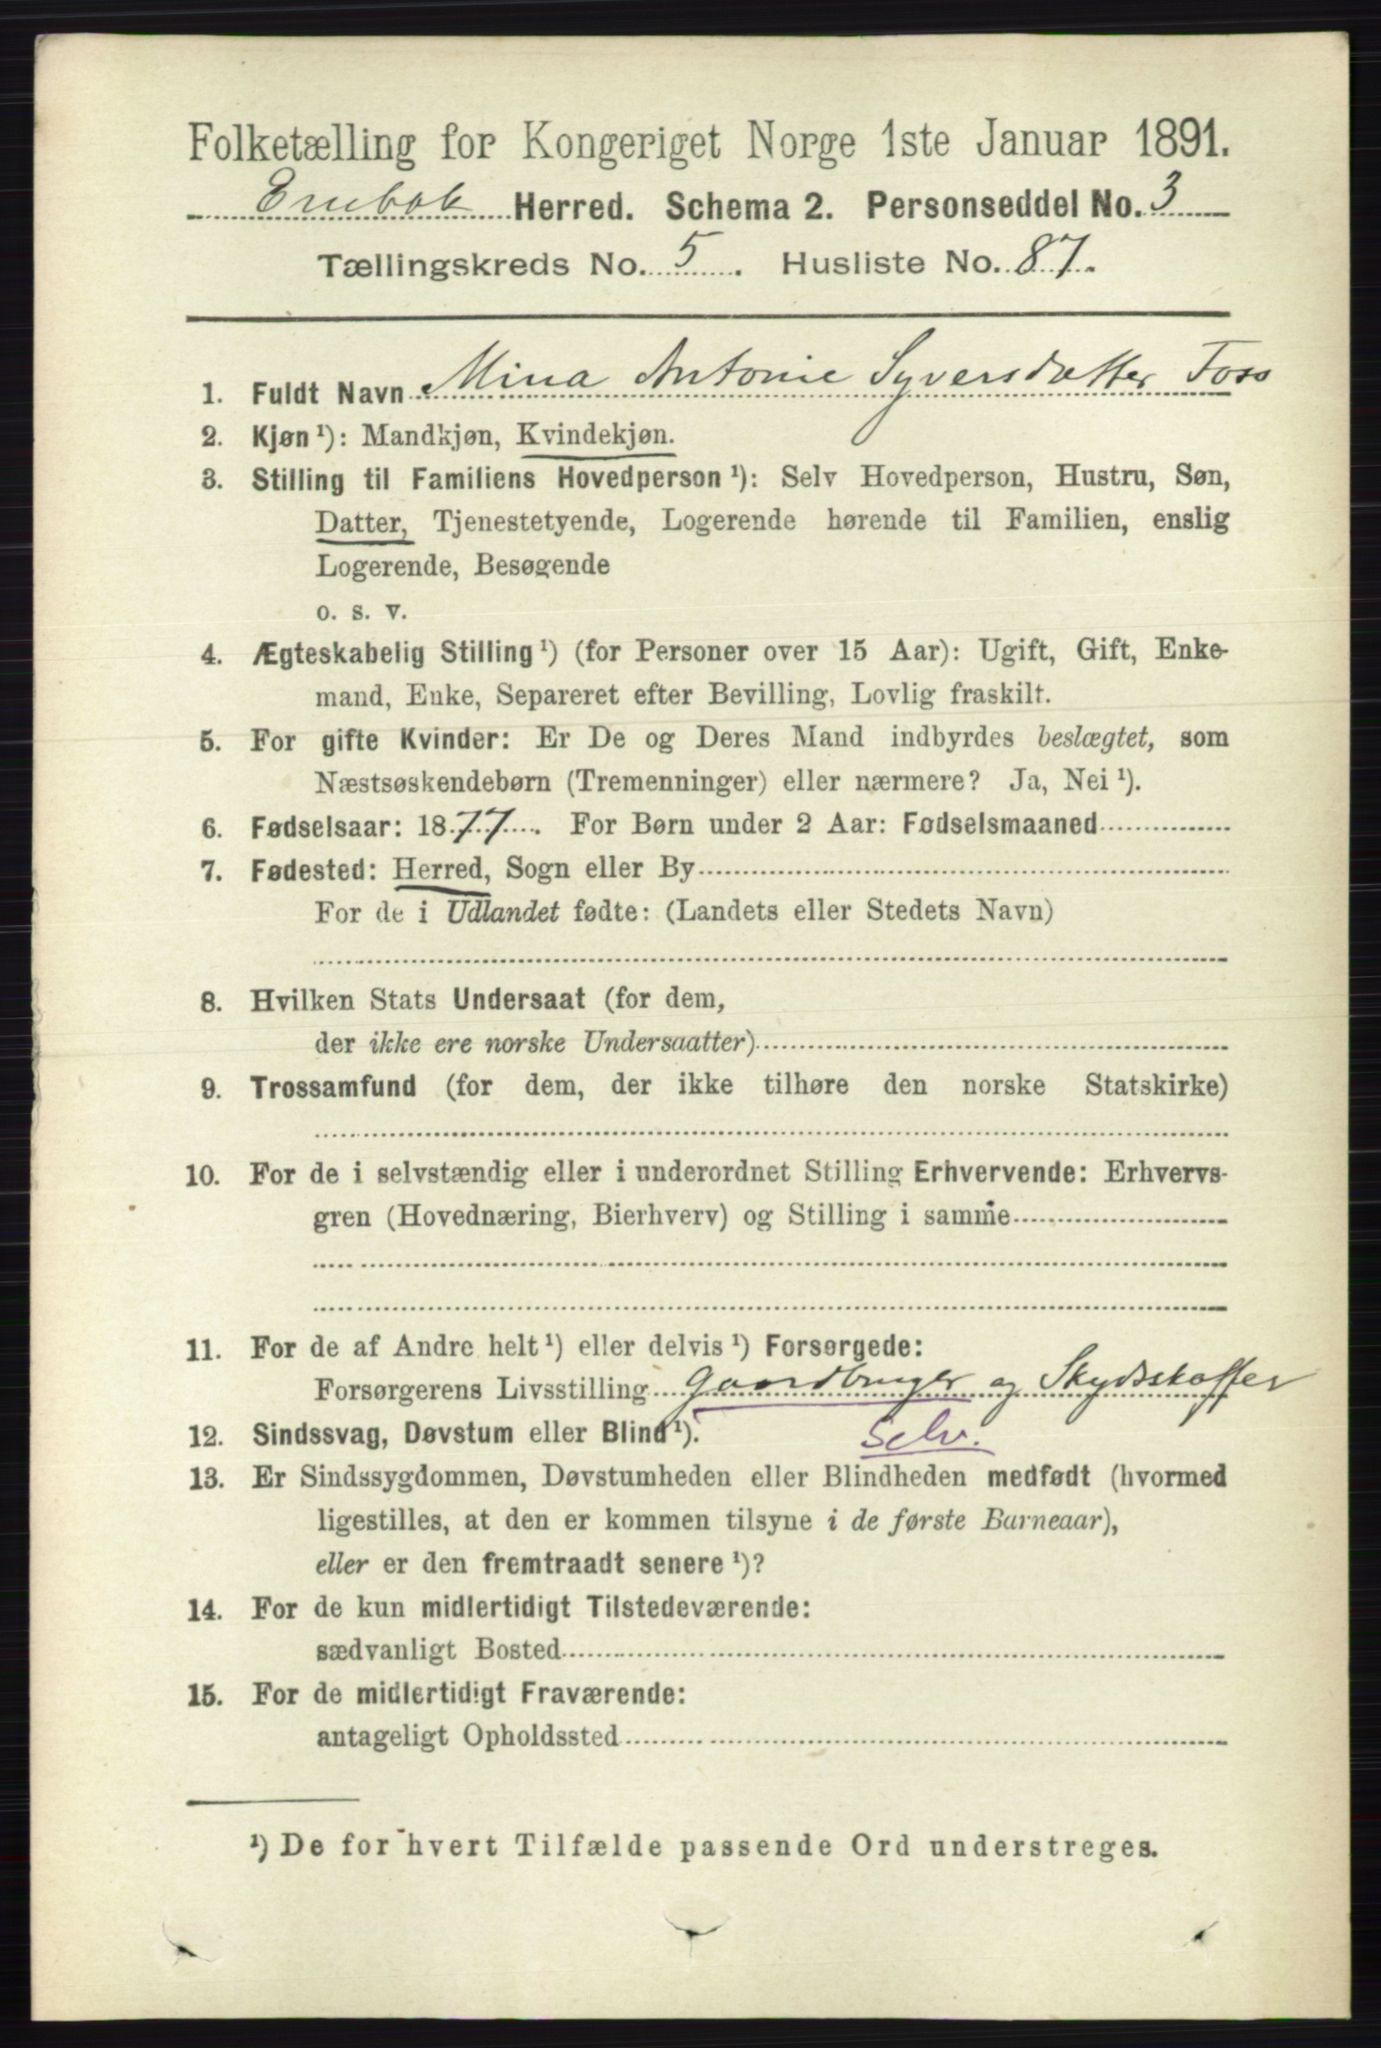 Folketælling for Kongeriget Norge 1ste Januar 1891.
Enebak Herred. Schema 2. Personseddel No. 3
Tællingskreds No. 5. Husliste No. 87.
1. Fuldt Navn Mina Antonie Syversdatter Foss
2. Kjøn ¹): Mandkjøn, Kvindekjøn.
3. Stilling til Familiens Hovedperson ¹): Selv Hovedperson, Hustru, Søn,
Datter, Tjenestetyende, Logerende hørende til Familien, enslig
Logerende, Besøgende
o. s. v.
4. Ægteskabelig Stilling ¹) (for Personer over 15 Aar): Ugift, Gift, Enke-
mand, Enke, Separeret efter Bevilling, Lovlig fraskilt.
5. For gifte Kvinder: Er De og Deres Mand indbyrdes beslægtet, som
Næstsøskendebørn (Tremenninger) eller nærmere? Ja, Nei ¹).
6. Fødselsaar: 1877. For Børn under 2 Aar: Fødselsmaaned
7. Fødested: Herred, Sogn eller By
For de i Udlandet fødte: (Landets eller Stedets Navn)
8. Hvilken Stats Undersaat (for dem,
der ikke ere norske Undersaatter)
9. Trossamfund (for dem, der ikke tilhøre den norske Statskirke)
10. For de i selvstændig eller i underordnet Stilling Erhvervende: Erhvervs-
gren (Hovednæring, Bierhverv) og Stilling i samme
11. For de af Andre helt ¹) eller delvis ¹) Forsørgede:
Forsørgerens Livsstilling Gaardbruger og Skydsskaffer
12. Sindssvag, Døvstum eller Blind ¹). Selv.
13. Er Sindssygdommen, Døvstumheden eller Blindheden medfødt (hvormed
ligestilles, at den er kommen tilsyne i de første Barneaar),
eller er den fremtraadt senere ¹)?
14. For de kun midlertidigt Tilstedeværende:
sædvanligt Bosted
15. For de midlertidigt Fraværende:
antageligt Opholdssted
¹) De for hvert Tilfælde passende Ord understreges.